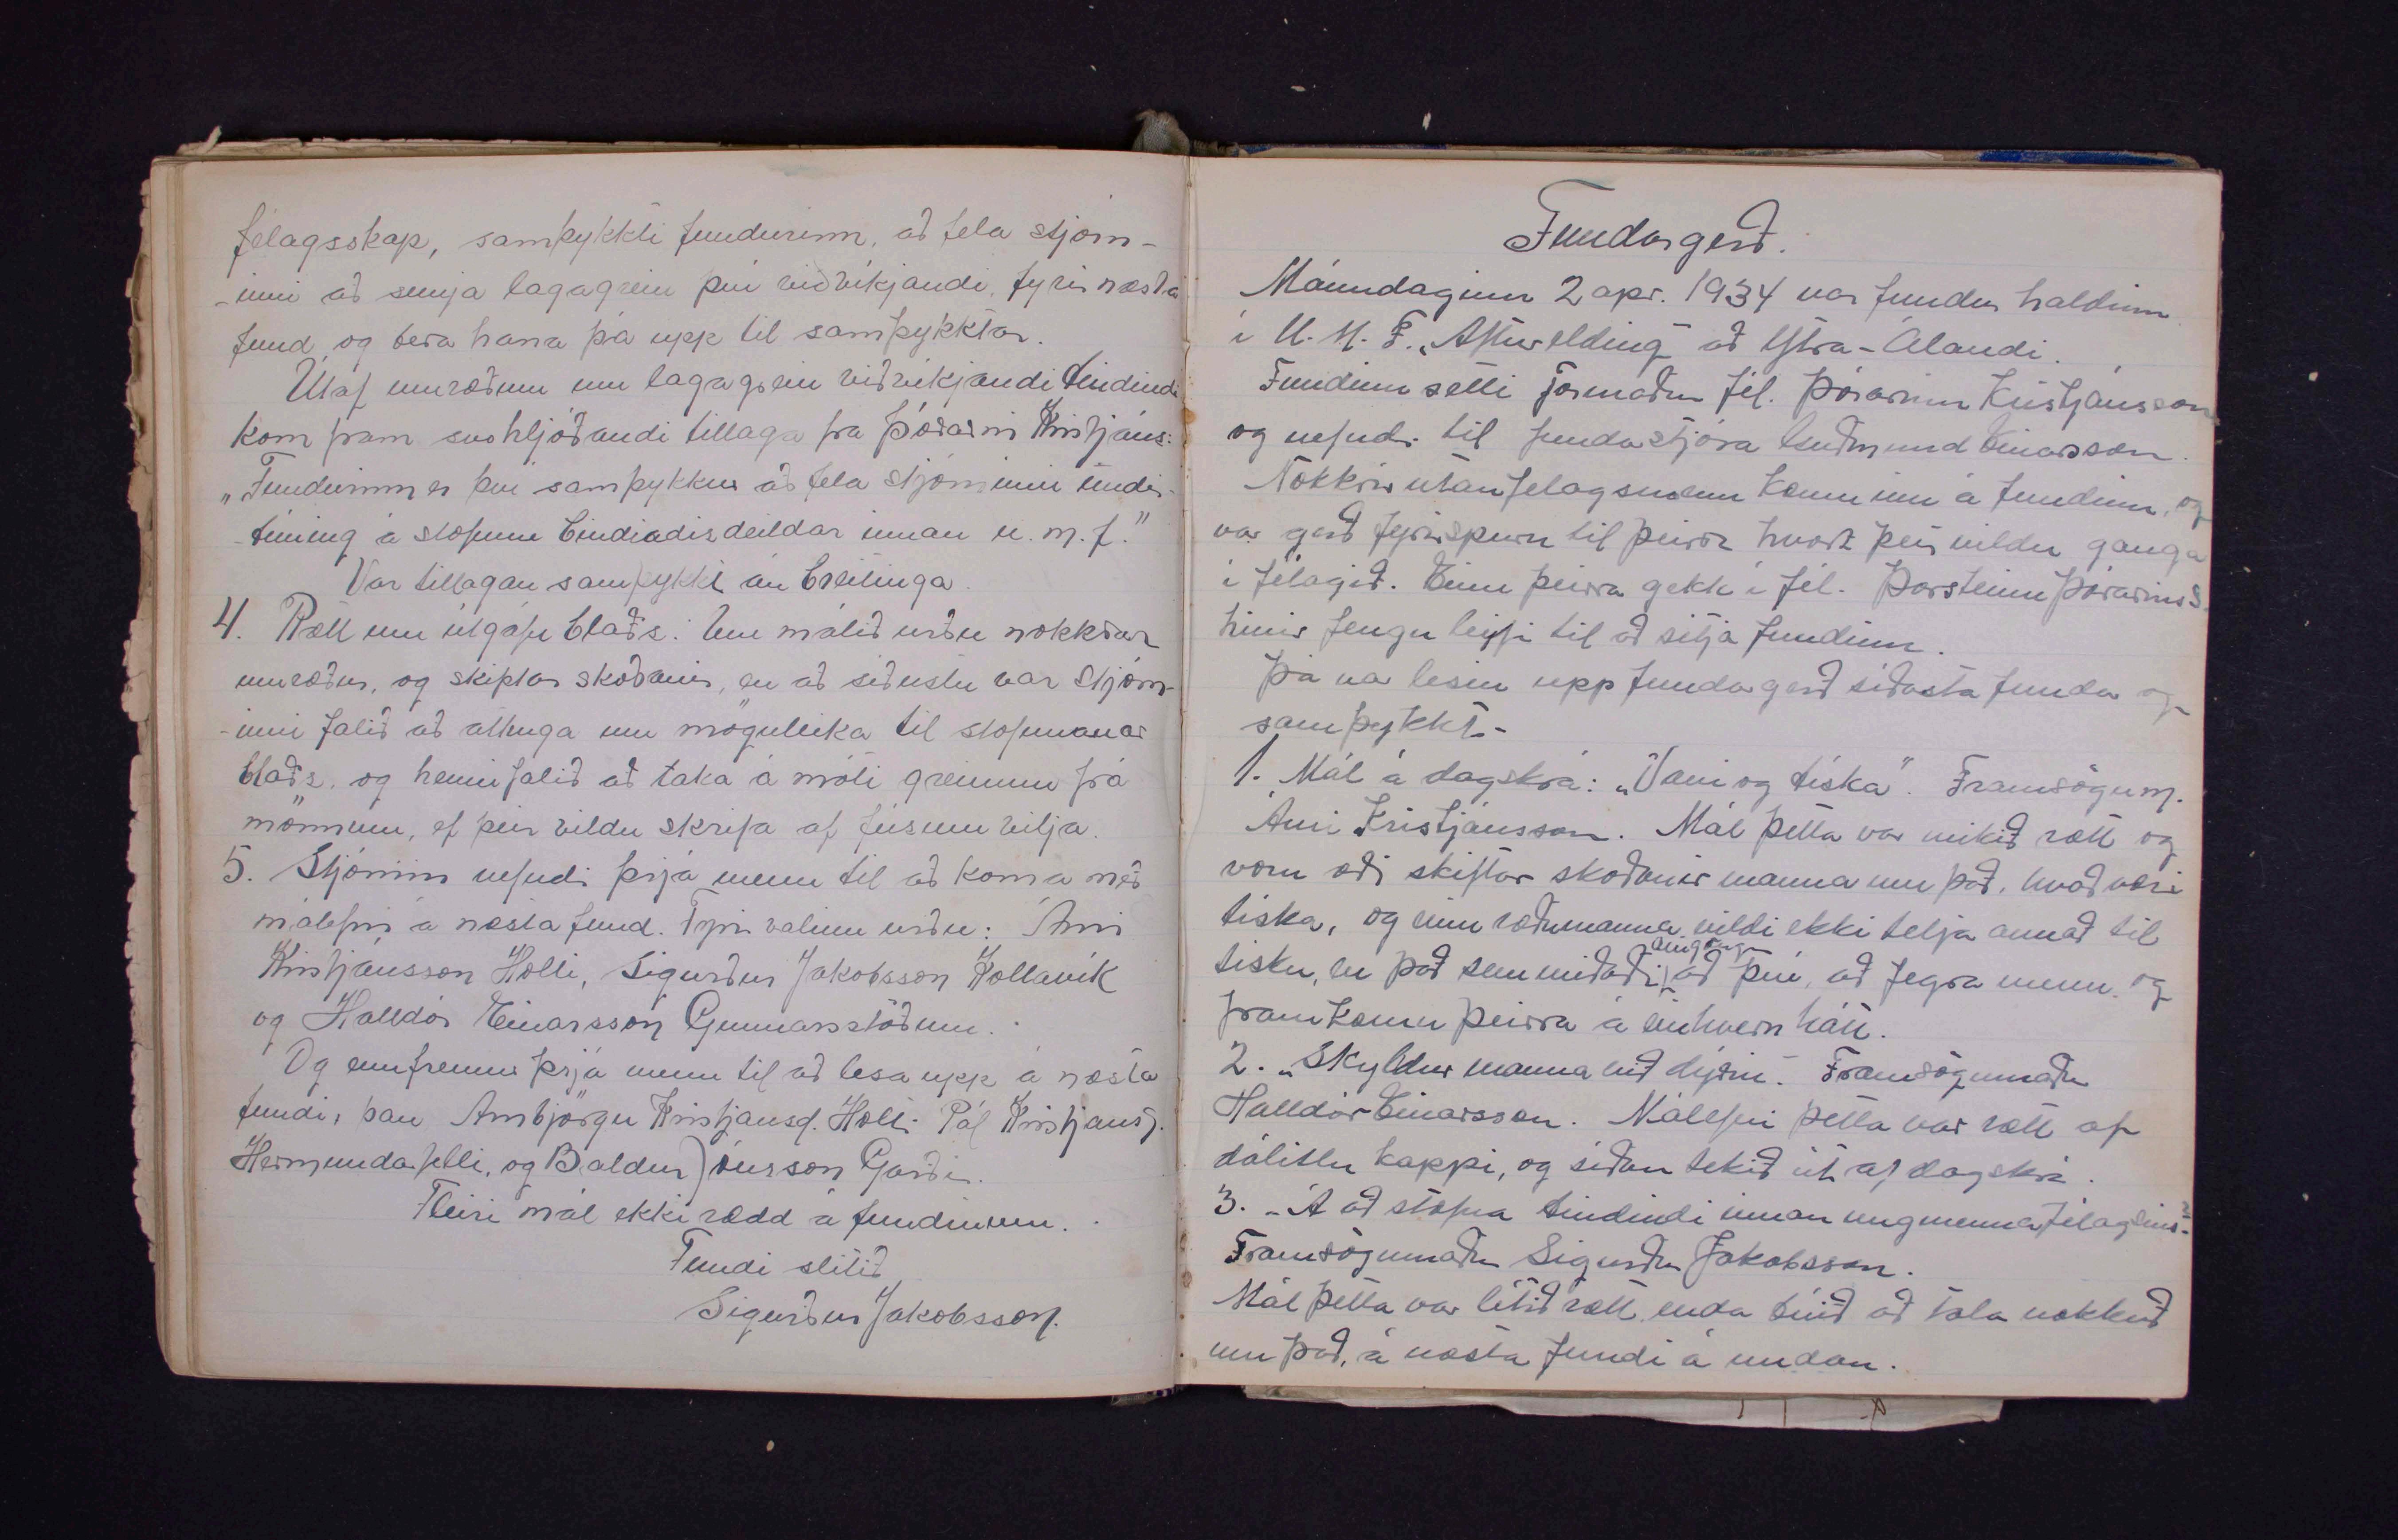 félagsskap, samþykkti fundurinn, að fela stjórn-
-inni að semja lagagrein því viðvíkjandi, fyrir næsta
fund og bera hana þá upp til samþykktar.
Útaf umræðum um lagagrein viðvíkjandi bindindi
kom fram svohljóðandi tillaga frá Þórarni Kristjáns:
„Fundurinn er því samþykkur að fela stjórninni undir-
-búning á stofnun bindindisdeildar innan u. m. f."
Var tillagan samþykkt án breitinga.
4. Rætt um útgáfu blaðs. Um málið urðu nokkrar
umræður, og skiptar skoðanir, en að síðustu var stjórn-
-inni falið að athuga um möguleika til stofnunar
blaðs, og henni falið að taka á móti greinum frá
mönnum, ef þeir vildu skrifa af fúsum vilja.
5. Stjórnin nefndi þrjá menn til að koma með
málefni á næsta fund. Fyrir valinu urðu: Árni
Kristjánsson Holti, Sigurður Jakobsson Kollavík
og Halldór Einarsson Gunnarsstöðum.
Og ennfremur þrjá menn til að lesa upp á næsta
fundi, þau Arnbjörgu Kristjánsd. Holti. Pál Kristjánss.
Hermundarfelli, og Baldur Jónsson Garði.
Fleiri mál ekki rædd á fundinum.
Fundi slitið
Sigurður Jakobsson.
Fundargerð.
Mánudaginn 2 apr. 1934 var fundur haldinn
í U. M. F. „Afturelding" að Ytra-Álandi.
Fundinn setti formaður fél. Þórarinn Kristjánsson
og nefndi til fundarstjóra Guðmund Einarsson.
Nokkrir utanfélagsmenn komu inn á fundinn, og
var gerð fyrirspurn til þeirra hvort þeir vildu ganga
í félagið. Einn þeirra gekk í fél. Þorsteinn Þórarinss.
hinir fengu leyfi til að sitja fundinn.
Þá var lesin upp fundargerð síðasta fundar og
samþykkt.
1. Mál á dagskrá: „Vani og tíska". Framsögum.
Árni Kristjánsson. Mál þetta var mikið rætt og
voru æði skiftar skoðanir manna um það, hvað væri
tíska, og einn ræðumanna vildi ekki telja annað til
tísku, en það sem miðaði eingöngu að því, að fegra menn og
framkomu þeirra á einhvern hátt.
2. „Skyldur manna við dýrin". Framsögumaður
Halldór Einarsson. Málefni þetta var rætt af
dálitlu kappi, og síðan tekið út af dagskrá.
3. „Á að stofna bindindi innan ungmennafélagsins?"
Framsögumaður Sigurður Jakobsson.
Mál þetta var lítið rætt, enda búið að tala nokkuð
um það, á næsta fundi á undan.